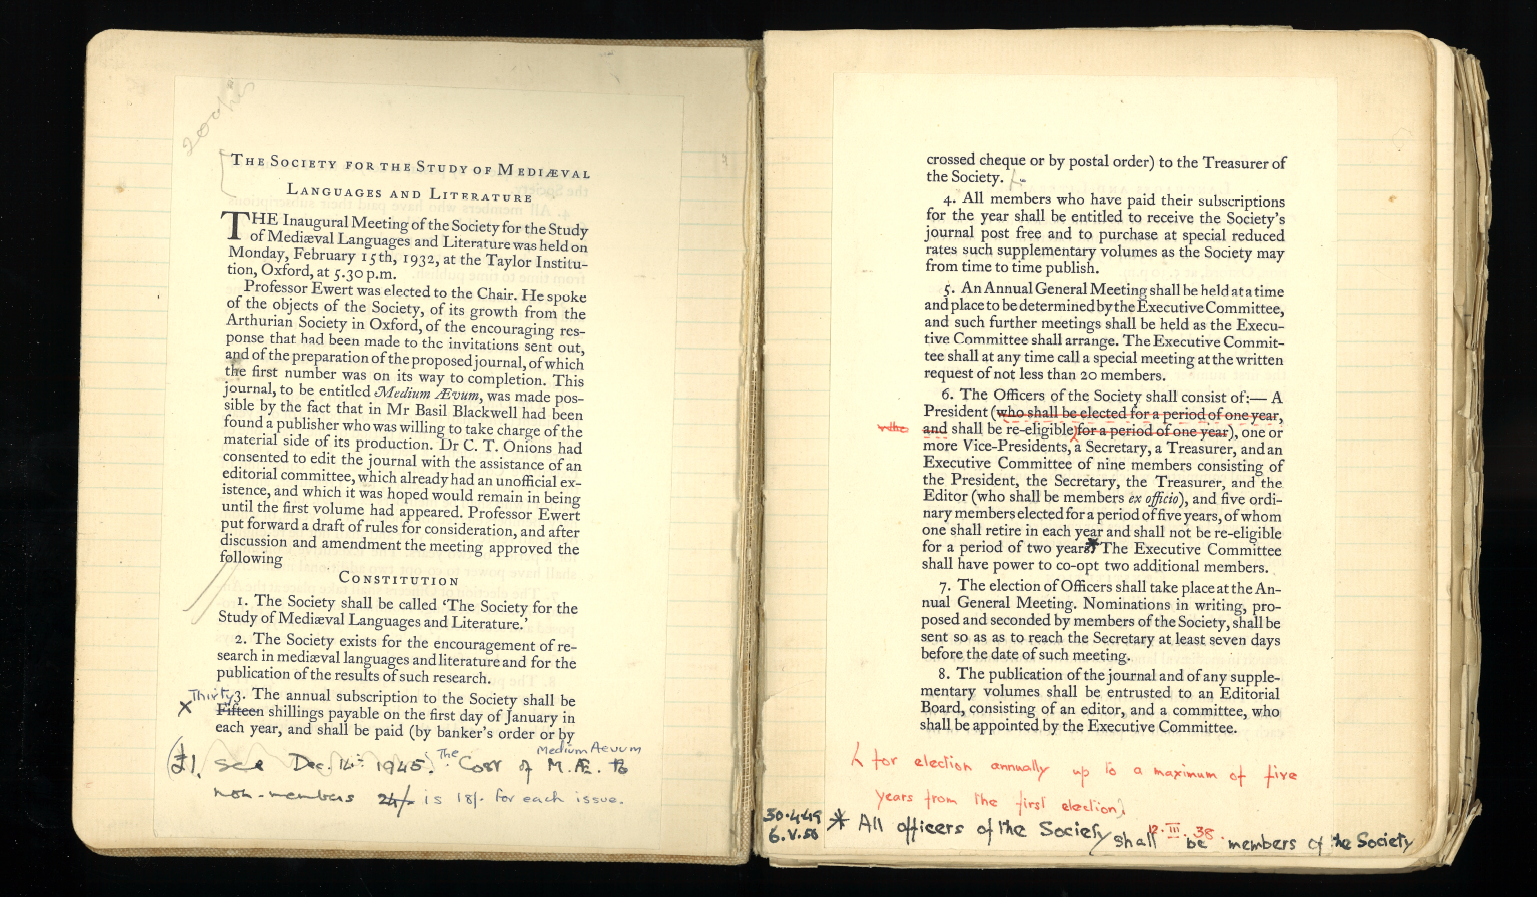 200 chis
THE SOCIETY FOR THE STUDY OF MEDIÆVAL
LANGUAGES AND LITERATURE
THE Inaugural Meeting of the Society for the Study
of Mediæval Languages and Literature was held on
Monday, February 15th, 1932, at the Taylor Institu-
tion, Oxford, at 5.30 p.m.
Professor Ewert was elected to the Chair. He spoke
of the objects of the Society, of its growth from the
Arthurian Society in Oxford, of the encouraging res-
ponse that had been made to the invitations sent out,
and of the preparation of the proposed journal, of which
the first number was on its way to completion. This
journal, to be entitled Medium Ævum, was made pos-
sible by the fact that in Mr Basil Blackwell had been
found a publisher who was willing to take charge of the
material side of its production. Dr C. T. Onions had
consented to edit the journal with the assistance of an
editorial committee, which already had an unofficial ex-
istence, and which it was hoped would remain in being
until the first volume had appeared. Professor Ewert
put forward a draft of rules for consideration, and after
discussion and amendment the meeting approved the
following
CONSTITUTION
1. The Society shall be called ‘The Society for the
Study of Mediæval Languages and Literature.’
2. The Society exists for the encouragement of re-
search in mediæval languages and literature and for the
publication of the results of such research.
3. The annual subscription to the Society shall be
Thirty
x Fifteen shillings payable on the first day of January in
each year, and shall be (by banker's order or by
Medium Aevum
£1. see Dec. 14th 1945. The Cost of M.Æ. to
non-members 24/- is 18/- for each issue.
crossed cheque or by postal order) to the Treasurer of
the Society.
4. All members who have paid their subscriptions
for the year shall be entitled to receive the Society's
journal post free and to purchase at special reduced
rates such supplementary volumes as the Society may
from time to time publish.
5. An Annual General Meeting shall be held at a time
and place to be determined by the Executive Committee,
and such further meetings shall be held as the Execu-
tive Committee shall arrange. The Executive Commit-
tee shall at any time call a special meeting at the written
request of not less than 20 members.
6. The Officers of the Society shall consist of:— A
President (who shall be elected for a period of one year,
and shall be re-eligible for a period of one year), one or
more Vice-Presidents, a Secretary, a Treasurer, and an
Executive Committee of nine members consisting of
the President, the Secretary, the Treasurer, and the
Editor (who shall be members ex officio), and five ordi-
nary members elected for a period of five years, of whom
one shall retire in each year and shall not be re-eligible
for a period of two years.* The Executive Committee
shall have power to co-opt two additional members.
7. The election of Officers shall take place at the An-
nual General Meeting. Nominations in writing, pro-
posed and seconded by members of the Society, shall be
sent so as as to reach the Secretary at least seven days
before the date of such meeting.
8. The publication of the journal and of any supple-
mentary volumes shall be entrusted to an Editorial
Board, consisting of an editor, and a committee, who
shall be appointed by the Executive Committee.
for election annually up to a maximum of five
years from the first election)
12.III.38.
30.4.49
6.V.50
* All officers of the Society shall be members of the Society